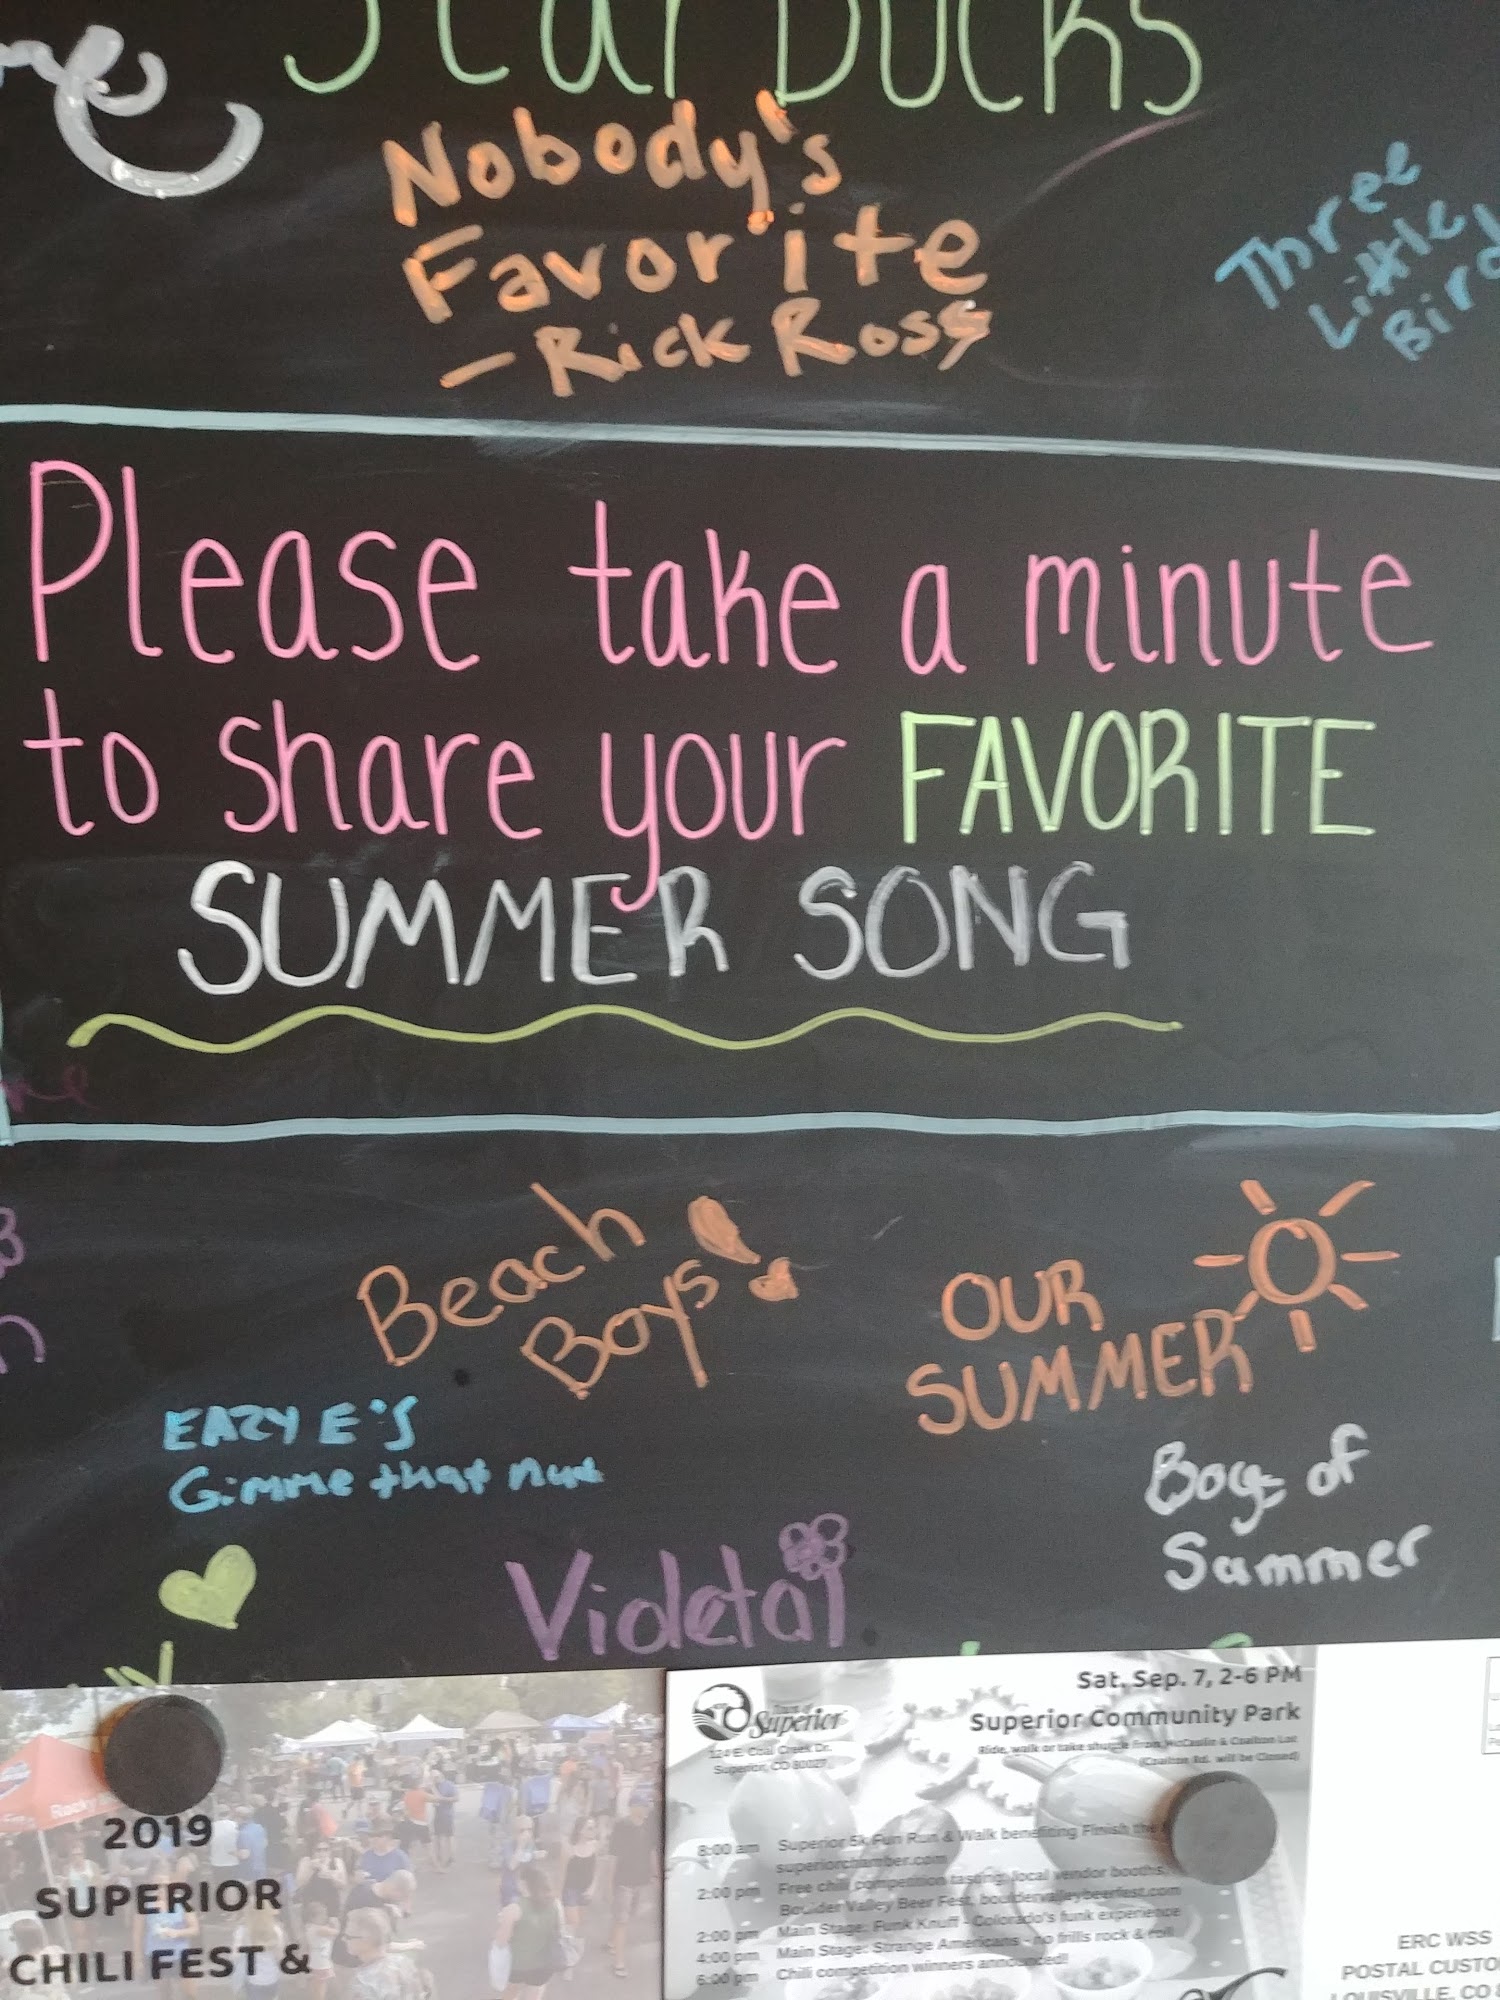 Starbucks
Nobody's
Favorite
- Rick Ross
Three
Little
Bird
Please take a minute
to share your FAVORITE
SUMMER SONG
Beach
Boys!
OUR
SUMMER
EAZY E'S
Gimme that nut
Boys of
Summer
Violeta
2019
SUPERIOR
CHILI FEST &
Superior
124 E. Coal Creek Dr.
Superior, CO 80027
Sat, Sep. 7, 2-6 PM
Superior Community Park
Ride, walk or take shuttle from McCaslin & Coalton Lot
(Coalton Rd. will be Closed)
8:00 am Superior 5k Fun Run & Walk benefiting Finish the
superiorchamber.com
2:00 pm Free chili competition tasting, local vendor booths,
Boulder Valley Beer Fest, bouldervalleybeerfest.com
2:00 pm Main Stage: Funk Knuf - Colorado's funk experience
4:00 pm Main Stage: Strange Americans - no frills rock & roll
6:00 pm Chili competition winners announced!
ERC WSS
POSTAL CUSTO
LOUISVILLE, CO 8